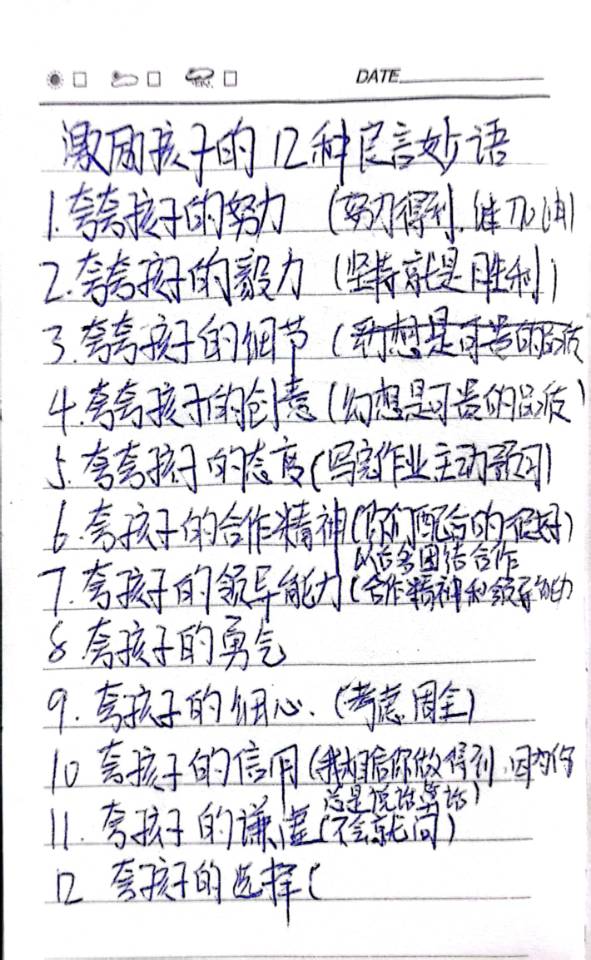 DATE
激励孩子的12种良言妙语
1.夸夸孩子的努力 (努力得到.继加油)
2.夸夸孩子的毅力 (坚持就是胜利)
3.夸夸孩子的细节 (想是可贵的品质
4.夸夸孩子的创意 (幻想是可贵的品质)
5.夸夸孩子的态度 (写完作业主动)
6.夸孩子的合作精神 (你们配合的很好)
以后多团结合作
7.夸孩子的领导能力 (合作精神和领导能力
8 夸孩子的勇气
9.夸孩子的细心.(考虑周全)
10 夸孩子的信用 (我相信你做得到,因为你
总是说话算话)
11.夸孩子的谦虚 (不会就问)
12 夸孩子的选择(